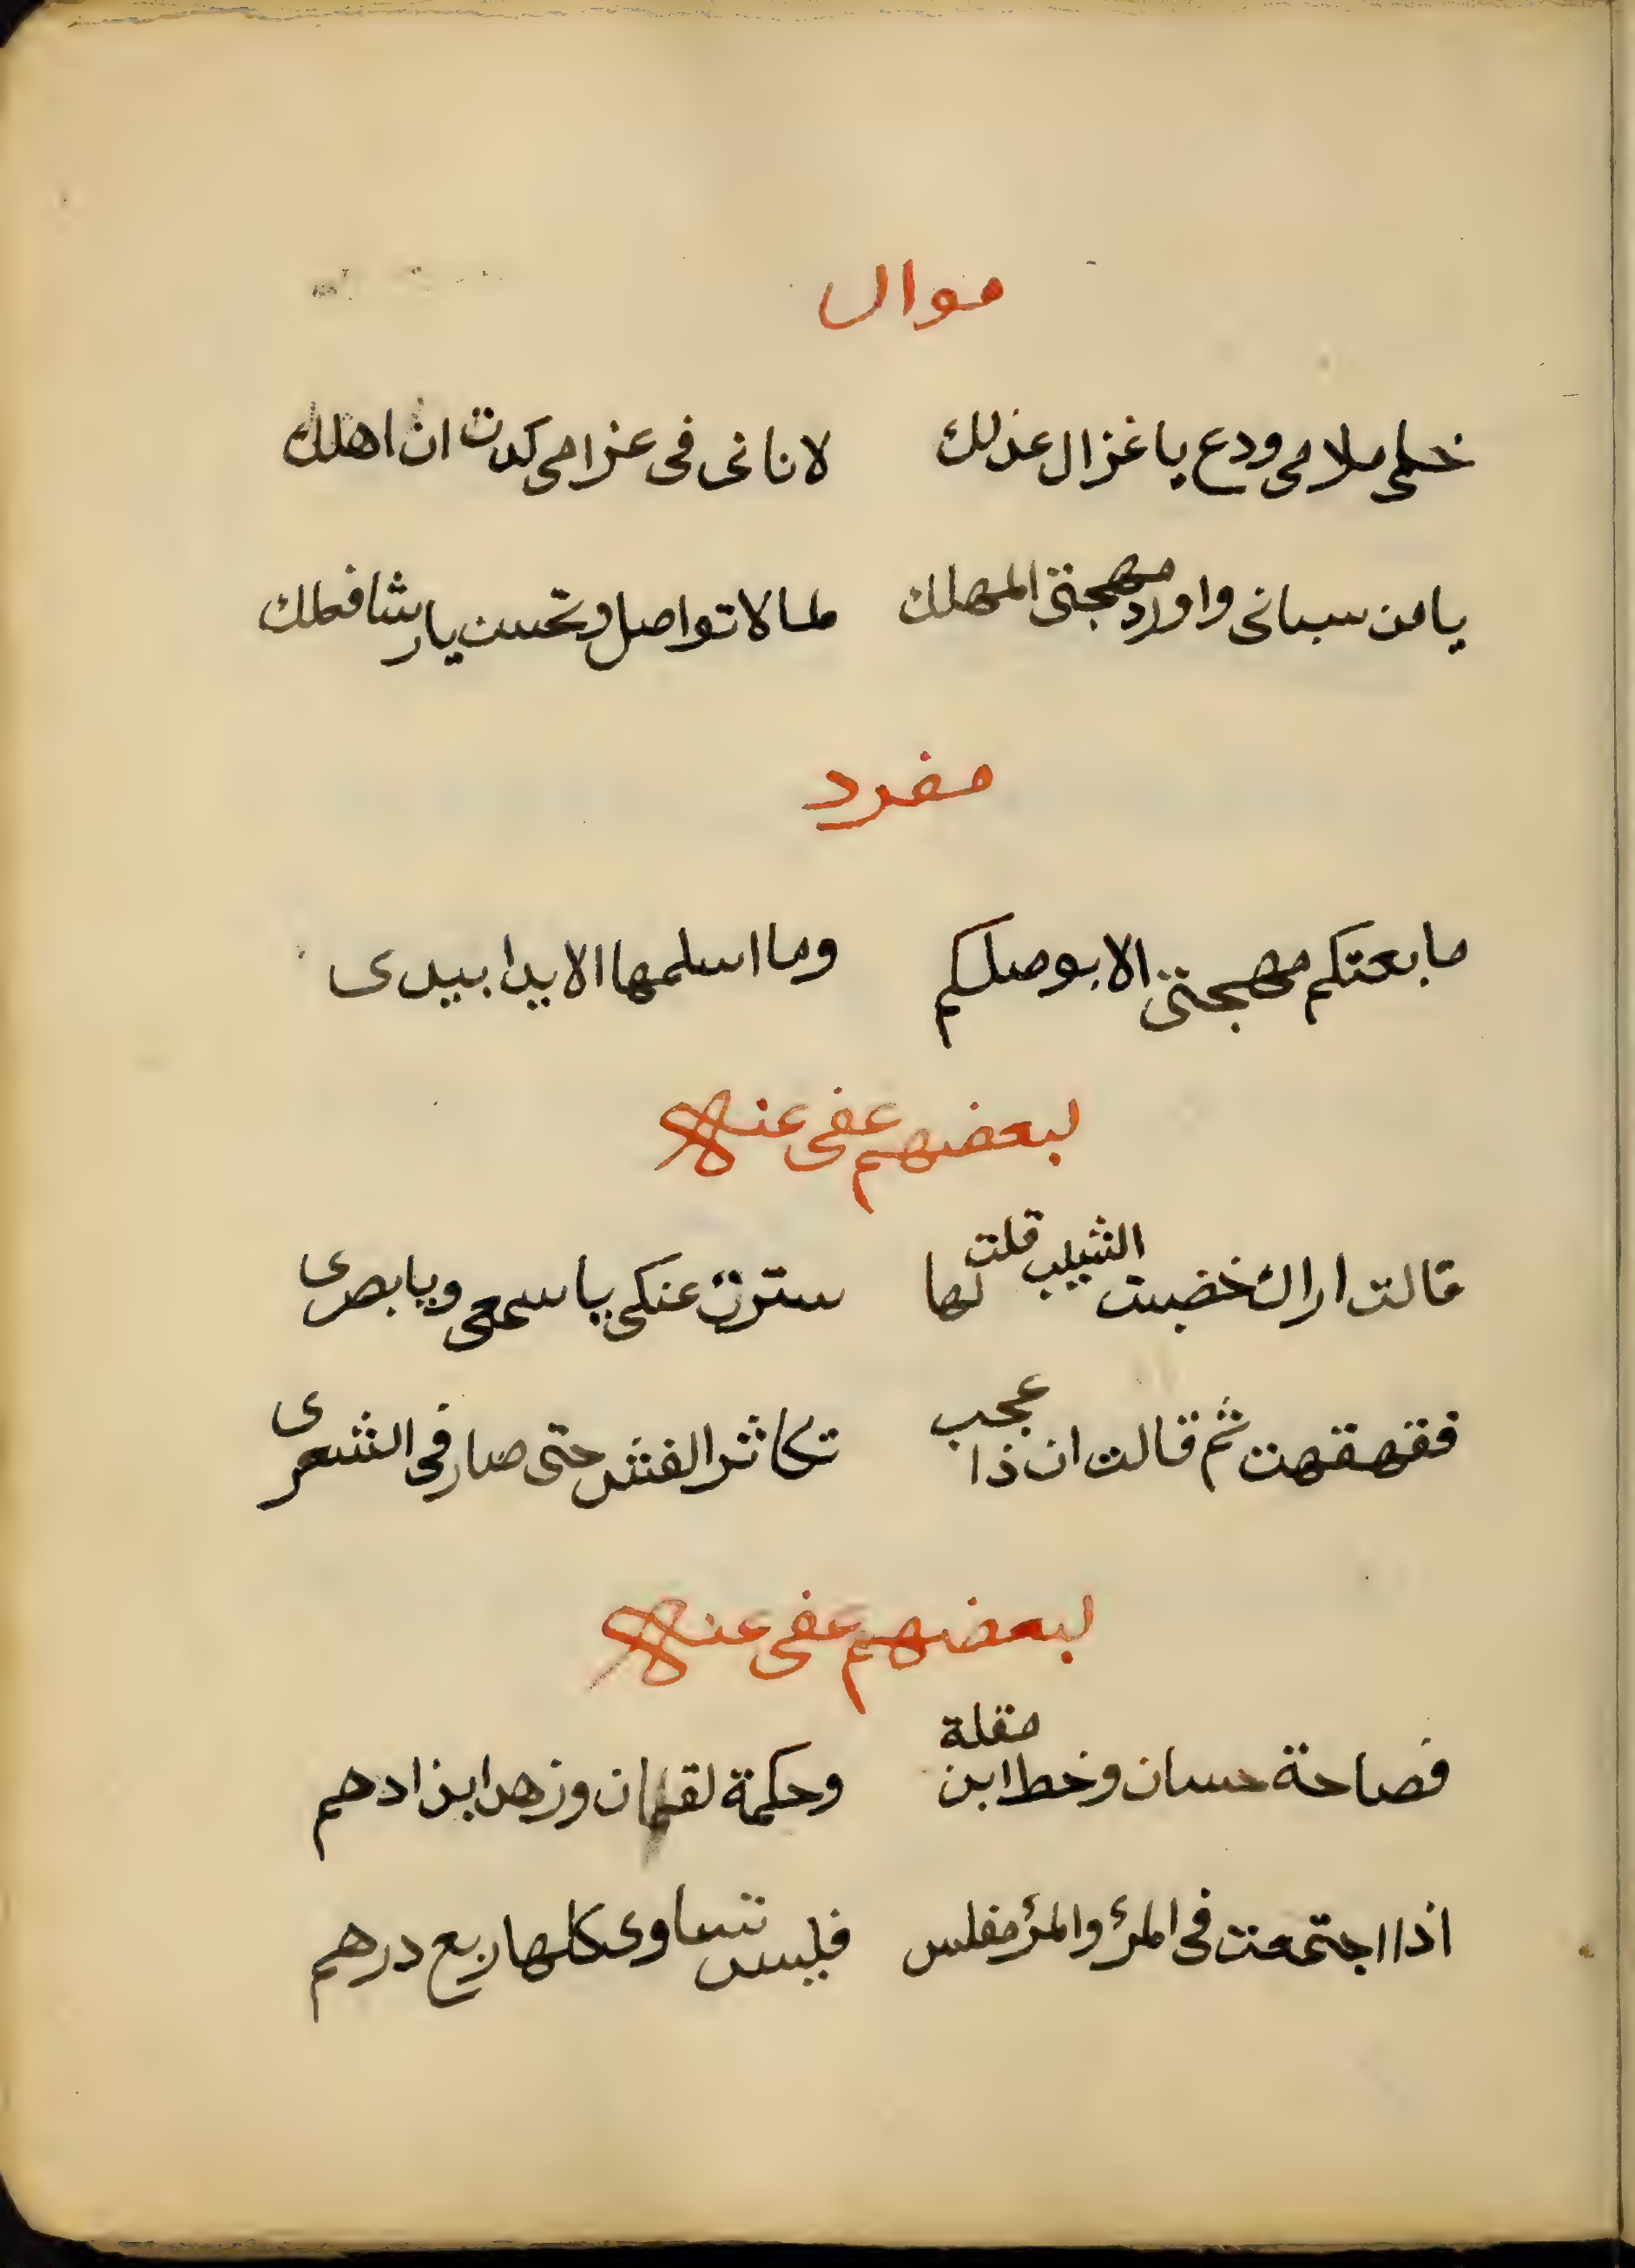 موال
خلى ملامى ودع يا غزال عذلك لا نانى فى غرامى كدت ان اهلك
يا من سبانى واورد مهجتى المهلك لما لا تواصل وتحسن يا رشا فعلك
مفرد
ما بعتكم مهجتى الا بوصلكم وما اسلمها الا يدا بيدى
لبعضهم عفى عنه
قالت اراك خضبت الشيب قلت لها سترت عنكى يا سمعى ويا بصرى
فقهقهت ثم قالت ان ذا عجب تكاثر الغش حتى صار فى الشعرى
لبعضهم عفى عنه
فصاحة حسان وخط ابن مقلة وحكمة لقمان وزهد ابن ادهم
اذا اجتمعت فى المرئ والمرؤ مفلس فليس تساوى كلها ربع درهم